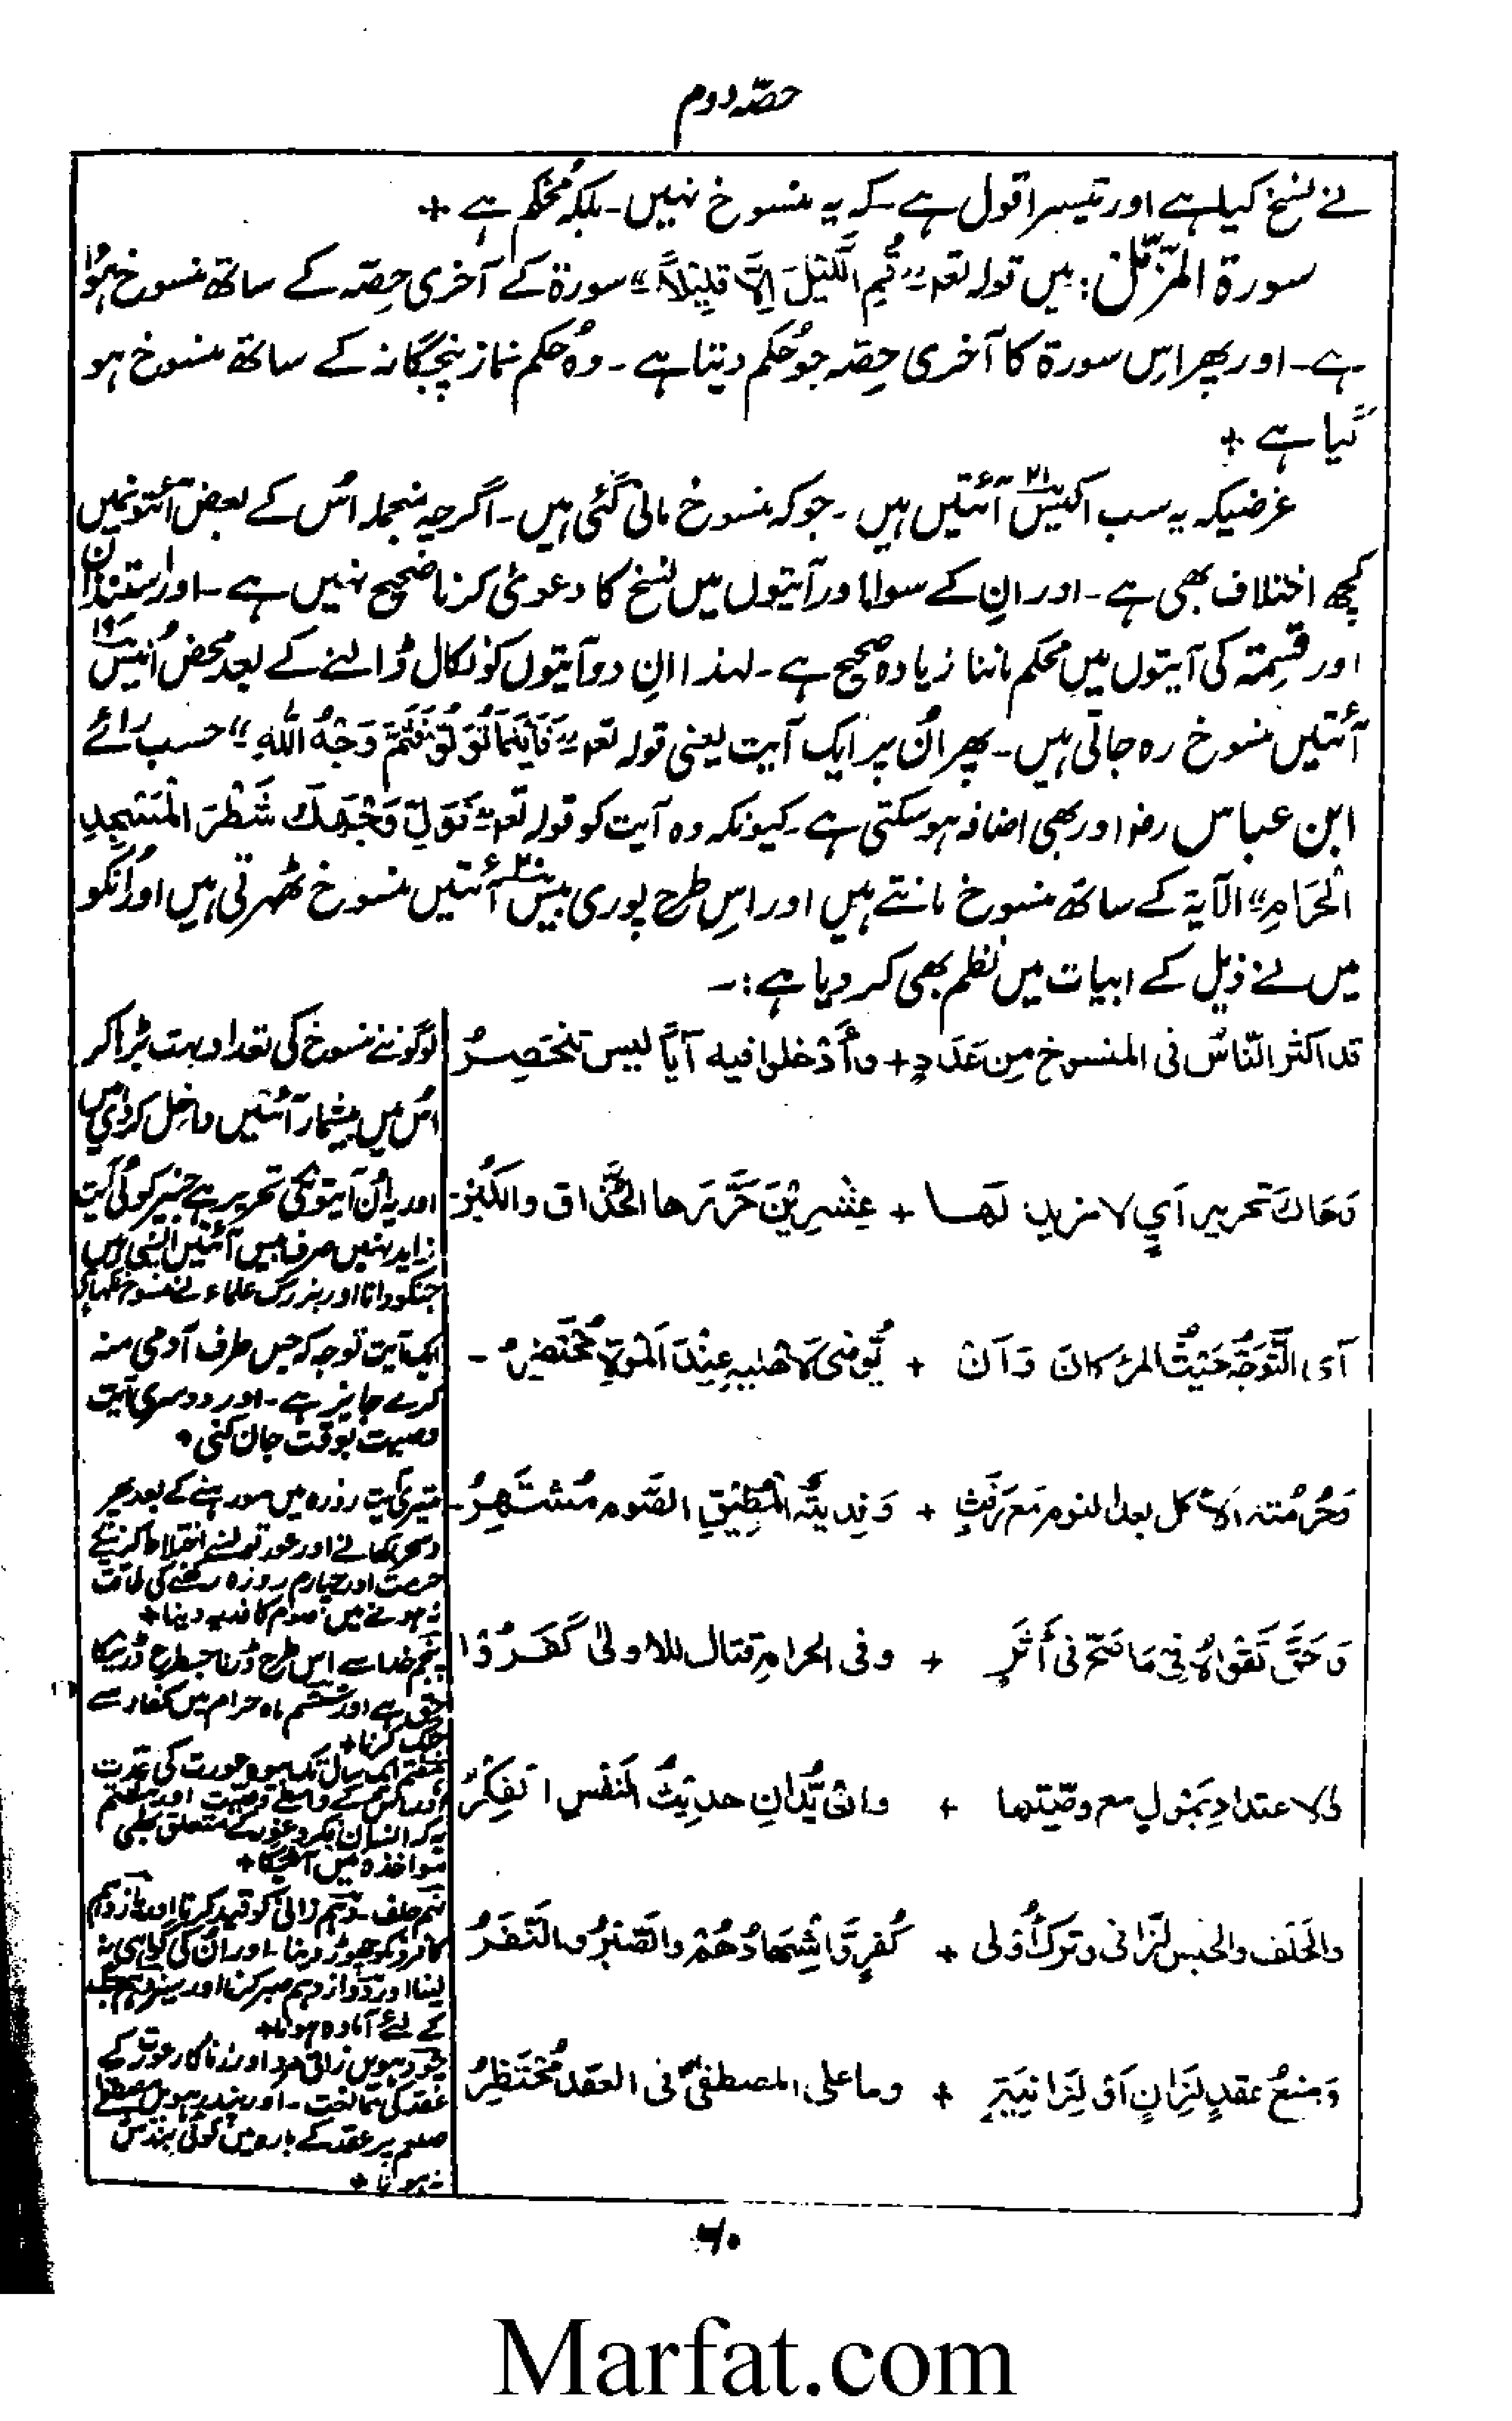 حصّہ دوم
نے نسخ کیا ہے اور تیسرا قول ہے کہ یہ منسوخ نہیں۔ بلکہ مُحکم ہے +
سورۃ المزّمّل: میں قولہ تعہ "قُمِ اللَّیْلَ اِلَّا قَلِیْلاً" سورۃ کے آخری حِصّہ کے ساتھ منسوخ ہُؤا
ہے۔ اور پھر اِس سورۃ کا آخری حِصّہ جو حُکم دیتا ہے۔ وہُ حکم نماز پنجگانہ کے ساتھ منسوخ ہو
گیا ہے +
غرضیکہ یہ سب اکیس ۲۱ آئتیں ہیں۔ جو کہ منسوخ مانی گئی ہیں۔ اگرچہ منجملہ اُس کے بعض آئتونمیں
کچھ اختلاف بھی ہے۔ اور اِن کے سوا اور آیتوں میں نسخ کا دعویٰ کرنا صحیح نہیں ہے۔ اور استیذان
اور قسِمتہ کی آیتوں میں محکم ماننا زیادہ صحیح ہے۔ لہذا اِن دو آیتوں کو نکال ڈالنے کے بعد محض اُنیس ۱۹
آئتیں منسوخ رہ جاتی ہیں۔ پھر اُن پر ایک آیت یعنی قولہ تعہ "فَاَیْنَمَا تُوَلُّوْ فَثَمَّ وَجْہُ اللہِ" حسب رائے
ابن عباس رضہ اور بھی اضافہ ہو سکتی ہے۔ کیونکہ وہ آیت کو قولہ تعہ "فَوَلِّ وَجْھَکَ شَطْرَ الْمَسْجِدِ
الْحَرَامِ" الآیۃ کے ساتھ منسوخ مانتے ہیں اور اسِ طرح پوری بیس ۲۰ آئتیں منسوخ ٹھہرتی ہیں اور اُنکو
میں نے ذیل کے ابیات میں نظم بھی کر دیا ہے:۔
قد اکثر النّاسُ فی المنسوخ مِن عَدَدٍ + وأَدْخلوا فیہ آیاً لیس تنحَصِرُ
لوگوننے منسوخ کی تعداد بہت بڑھا کر
اُس میں بیشمار آئتیں داخل کر دی ہیں
وَھَاکَ تحریر آَیٍ لا مزید لَھا + عِشْرِیْنَ حَرَّرَھا الحُذّاق والکُبَرُ
اور یہ اُن آیتونکی تحریر ہے جنپر کوئی آیت
زاید نہیں صرف بیس آئتیں ایسی ہیں
جنکو دانا اور بزرگ علماء نے منسوخ
آی التَّوَجُّہ حَیْثُ المرْءُ کانَ وَاَنْ + یُّوصٰی لِاَھلیہِ عِنْدَ الْمَوْتِ مُحْتَضِرُ۔
ایک آیت توجہ کہ جس طرف آدمی منہ
کرے جایز ہے۔ اور دوسری آیت
وصیت بوقت جان کنی +
وَحُرمُتہ الاَکل بعد النوم مَع رَفَثٍ + وَفِدیۃٌ لِمُطِیْقِ الصَّوم مُشْتَھِرُ۔
تیسری آیت روزہ میں سو رہنے کے بعد پھر
کھانے اور عورتونسے اختلاط کرنیکی
حرمت اور چہارم روزہ رکھنے کی طاقت
نہ ہونے میں صوم کا فدیہ دینا +
وَحَقَّ تَقْواہُ فِی مَا صَحَّ فی أَثَرٍ + وفی الحرامِ قتال للاولیٰ کَفَرُوْا
پنجم خدا سے اس طرح ڈرنا جسطرح ڈرنیکا
حق ہے اور ششم ماہ حرام میں کفار سے
جنگ کرنا +
والاعتداد بحَوْلٍ مع وصّیّتھا + وان یُّدَانِ حدیثُ النفس الفِکَرُ
ہفتم ایک سال تک بیوہ عورت کی عدت
اور اسکے واسطے وصیت اور ہشتم
یہ کہ انسان فکر و غور کے متعلق بھی
مواخذہ میں آئیگا +
والحَلف والحبس لِلزّانی وترک أُولی + کُفرٍ وَّاشِھادُھُمْ والصّبْرُ والنَّفَرُ
نہم حلف۔ دہم زانی کو قید کرنا اور یازدہم
کافرونکو چھوڑ دینا۔ اور اُن کی گواہی نہ
لینا اور دوازدہم صبر کرنا اور سیزدہم جنگ
کے لئے آمادہ ہونا +
وَمنعُ عقدٍ لِزَانٍ اَوْ لِزانیَۃٍ + وما علی المصطفیٰ فی العقد مُحْتَظِرُ
چودہویں زانی مرد اور زناکار عورت کے
عقد کی ممانعت۔ اور پندرہویں مصطفےٰ
صلعم پر عقد کے بارہ میں کوئی بندش
نہ ہونا +
۶۰
Marfat.com